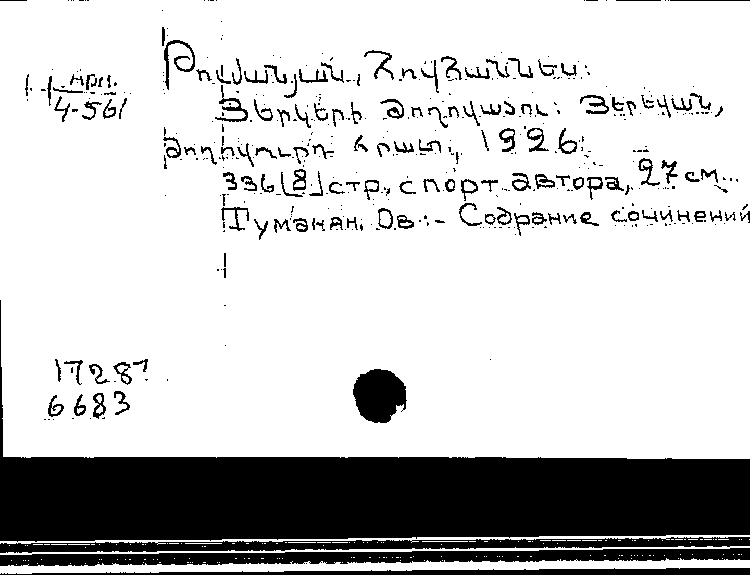 Թումանյան, Հովհաննես:
арм.
4-561
Յերկերի ժողովածու: Յերեվան,
ժողովուրդ հրատ., 1926.
336[8]стр., с порт. автора, 27 см...
Туманян. Ов.:- Собрание сочинений
17287
6683